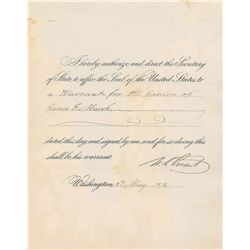 I hereby authorize and direct the Secretary
of State to affix the Seal of the United States to
a Warrant for the pardon of
James E. Marsh
dated this day, and signed by me, and for so doing this
shall be his warrant.
U.S. Grant
Washington, May